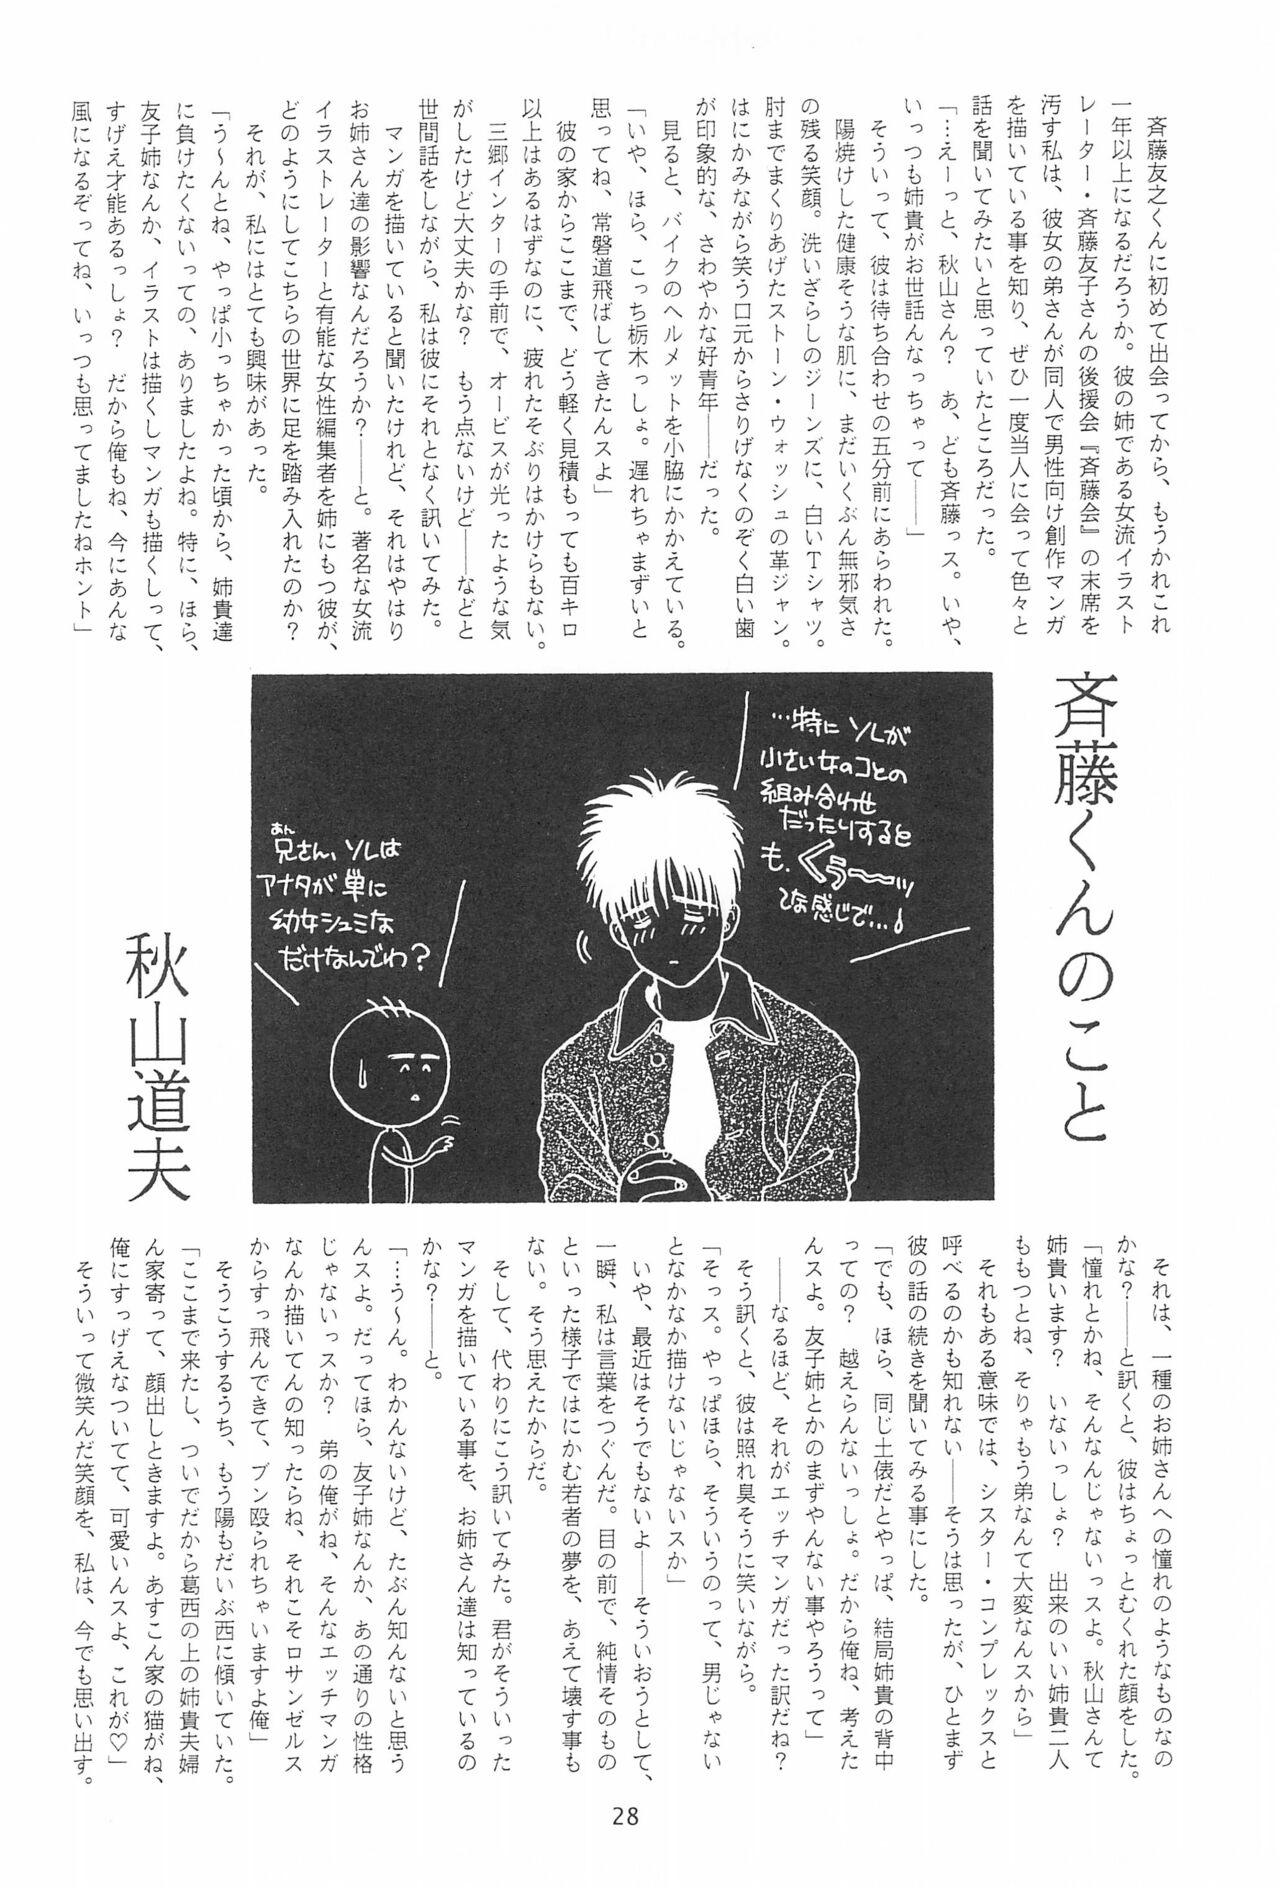 斉藤友之くんに初めて出会ってから、もうかれこれ
一年以上になるだろうか。彼の姉である女流イラスト
レーター・斉藤友子さんの後援会『斉藤会』の末席を
汚す私は、彼女の弟さんが同人で男性向け創作マンガ
を描いている事を知り、ぜひ一度当人に会って色々と
話を聞いてみたいと思っていたところだった。
「…えーっと、秋山さん？　あ、ども斉藤っス。いや、
いっつも姉貴がお世話んなっちゃって――」
そういって、彼は待ち合わせの五分前にあらわれた。
陽焼けした健康そうな肌に、まだいくぶん無邪気さ
の残る笑顔。洗いざらしのジーンズに、白いTシャツ。
肘までまくりあげたストーン・ウォッシュの革ジャン。
はにかみながら笑う口元からさりげなくのぞく白い歯
が印象的な、さわやかな好青年――だった。
見ると、バイクのヘルメットを小脇にかかえている。
「いや、ほら、こっち栃木っしょ。遅れちゃまずいと
思ってね、常磐道飛ばしてきたんスよ」
彼の家からここまで、どう軽く見積もっても百キロ
以上はあるはずなのに、疲れたそぶりはかけらもない。
三郷インターの手前で、オービスが光ったような気
がしたけど大丈夫かな？　もう点ないけど――などと
世間話をしながら、私は彼にそれとなく訊いてみた。
マンガを描いていると聞いたけれど、それはやはり
お姉さん達の影響なんだろうか？――と。著名な女流
イラストレーターと有能な女性編集者を姉にもつ彼が、
どのようにしてこちらの世界に足を踏み入れたのか？
それが、私にはとても興味があった。
「う～んとね、やっぱ小っちゃかった頃から、姉貴達
に負けたくないっての、ありましたよね。特に、ほら、
友子姉なんか、イラストは描くしマンガも描くしって、
すげえ才能あるっしょ？　だから俺もね、今にあんな
風になるぞってね、いっつも思ってましたねホント」
斉藤くんのこと
…特にソレが
小さい女のコとの
組み合わせ
だったりすると
も、くぅ～～ッ
てな感じで…！
あん
兄さん、ソレは
アナタが単に
幼女シュミな
だけなんでわ？
秋山道夫
それは、一種のお姉さんへの憧れのようなものなの
かな？――と訊くと、彼はちょっとむくれた顔をした。
「憧れとかね、そんなんじゃないっスよ。秋山さんて
姉貴います？　いないっしょ？　出来のいい姉貴二人
ももつとね、そりゃもう弟なんて大変なんスから」
それもある意味では、シスター・コンプレックスと
呼べるのかも知れない――そうは思ったが、ひとまず
彼の話の続きを聞いてみる事にした。
「でも、ほら、同じ土俵だとやっぱ、結局姉貴の背中
っての？　越えらんないっしょ。だから俺ね、考えた
んスよ。友子姉とかのまずやんない事やろうって」
――なるほど、それがエッチマンガだった訳だね？
そう訊くと、彼は照れ臭そうに笑いながら。
「そっス。やっぱほら、そういうのって、男じゃない
となかなか描けないじゃないスか」
いや、最近はそうでもないよ――そういおうとして、
一瞬、私は言葉をつぐんだ。目の前で、純情そのもの
といった様子ではにかむ若者の夢を、あえて壊す事も
ない。そう思えたからだ。
そして、代わりにこう訊いてみた。君がそういった
マンガを描いている事を、お姉さん達は知っているの
かな？――と。
「…う～ん。わかんないけど、たぶん知んないと思う
んスよ。だってほら、友子姉なんか、あの通りの性格
じゃないっスか？　弟の俺がね、そんなエッチマンガ
なんか描いてんの知ったらね、それこそロサンゼルス
からすっ飛んできて、ブン殴られちゃいますよ俺」
そうこうするうち、もう陽もだいぶ西に傾いていた。
「ここまで来たし、ついでだから葛西の上の姉貴夫婦
ん家寄って、顔出しときますよ。あすこん家の猫がね、
俺にすっげえなついてて、可愛いんスよ、これが♡」
そういって微笑んだ笑顔を、私は、今でも思い出す。
28